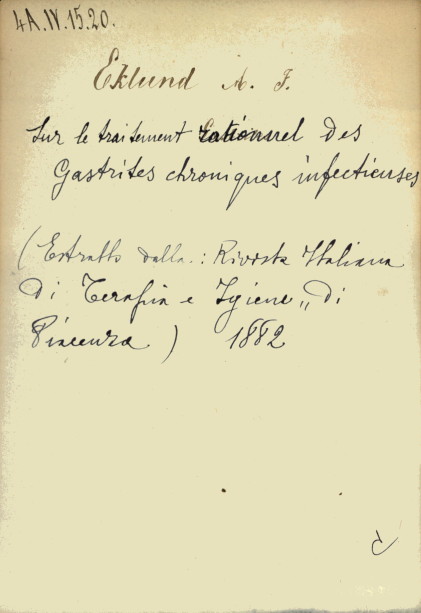 4A.IV.15.20.
Eklund A. F.
Sur le traitement rationnel des
Gastrites chroniques infectieuses
(Estratto dalla: Rivista Italiana
di Terapia e Igiene„ di
Piacenza) 1882